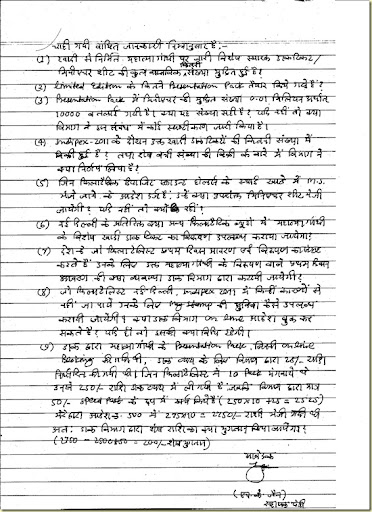 चाही गयी वांछित जानकारी निम्नानुसार है:-
(1) खादी से निर्मित महात्मा गांधी पर जारी विशेष स्मारक डाकटिकट/
मिनीएचर शीट की कुल कितनी संख्या मुद्रित हुई है?
(2) Limited Edition के कितने Presentation Pack तैयार किये गये हैं?
(3) Presentation Pack में मिनीएचर की मुद्रित संख्या 0.01 मिलियन अर्थात
10000 बतलाई गयी है। क्या यह संख्या सही है? यदि नहीं तो क्या
विभाग ने इस संबंध में कोई स्पष्टीकरण जारी किया है।
(4) Indipex-2011 के दौरान उक्त खादी डाक टिकटों की कितनी संख्या में
बिक्री हुई है? तथा शेष बची संख्या की बिक्री के बारे में विभाग ने
क्या निर्णय लिया है?
(5) जिन फिलाटैलिक डिपाजिट एकाउन्ट होल्डर्स के स्थाई खाते में M.S.
भेजे जाने के आदेश दर्ज हैं; उन्हें क्या उपरोक्त मिनिएचर शीट भेजी
जायेगी? यदि नहीं तो क्यों नहीं?
(6) नई दिल्ली के अतिरिक्त क्या अन्य फिलाटैलिक ब्यूरो में महात्मा गांधी
के विशेष खादी डाक टिकट का विरूपण उपलब्ध कराया जायेगा?
(7) देश के जो फिलाटैलिस्ट प्रथम दिवस आवरण पर विरूपण का
करते हैं उनके लिए उक्त महात्मा गांधी के विरूपण वाले प्रथम दिवस
आवरण की क्या व्यवस्था डाक विभाग द्वारा करायी जायेगी?
(8) जो फिलाटैलिस्ट नई दिल्ली, Indipex 2011 में किन्हीं कारणों से
नहीं जा पाये उनके लिए My Stamp की सुविधा कैसे उपलब्ध
करायी जायेगी? क्या डाक विभाग On line आदेश बुक कर
सकते हैं? यदि हाँ तो उसकी क्या विधि रहेगी।
(9) डाक द्वारा महात्मा गांधी के Presentation Pack, जिनकी online
Booking की गयी थी, डाक व्यय के लिए विभाग द्वारा 25/- राशि
निर्धारित की गयी थी। जिन फिलाटैलिस्ट ने 10 Pack मंगवाये थे
उनसे 250/- राशि डाक व्यय में ली गयी है जबकि विभाग द्वारा मात्र
50/- Speed Post के रूप में खर्च किये हैं (250×10 + 25 = 2525)
मेरे द्वारा आदेश क्र. 500 में 275×10 = 2750/- राशी भेजी गयी थी
अतः डाक विभाग द्वारा शेष राशि का क्या भुगतान किया जायेगा?
(2750 - 2500+50 = 200/- शेष भुगतान)